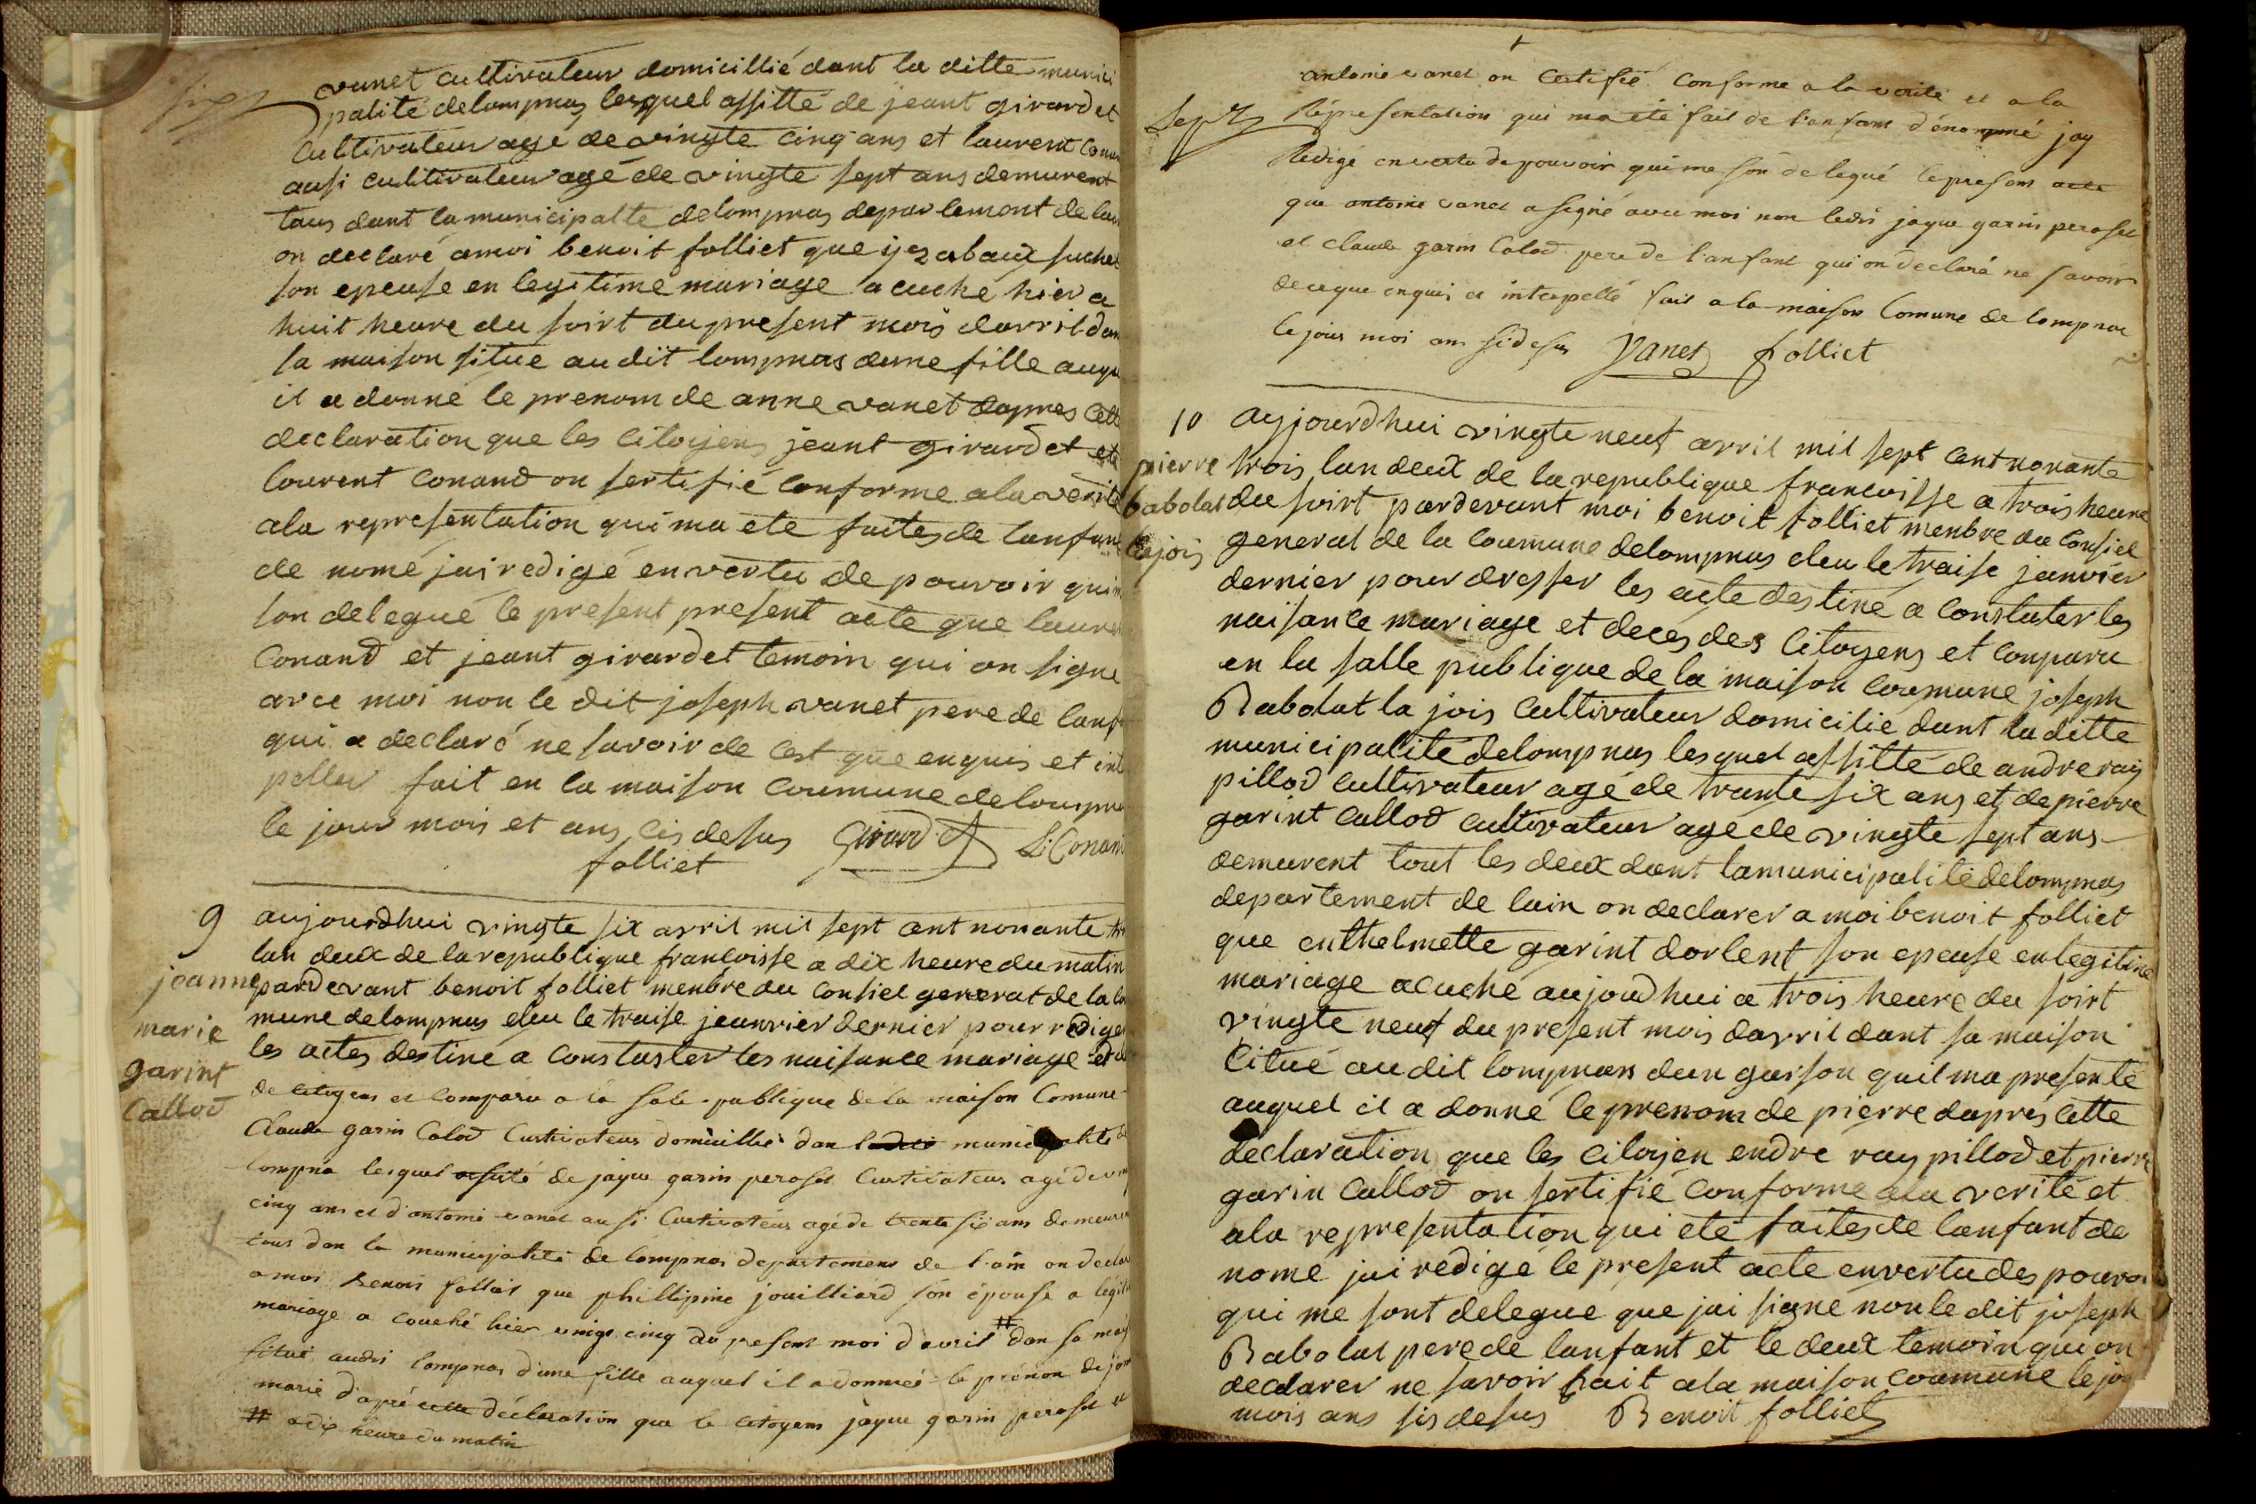 six
vanet cultivateur domicillié dant la ditte munici
palité delompnas lesquel assitté de jeant girardet
cultivateur agé de vingte cinq ans et laurent conan
ausi cultivateur agé de vingte sept ans demurent
tous dant la municipalte delompnas deparlemont de lain
on declaré amoi benoit folliet que suchet
son epeuse en legitime mariage a cuché hier a
huit heure du soirt du present mois davril dan
sa maison situe au dit lompnas dune fille auqu
il a donné le prenom de anne vanet dapres cette
declaration que les citoyens jeant girardet et
lourent conand on sertifié conforme ala verité
ala representation qui ma ete faites de lanfan
de nomé jai redigé en vertu de pouvoir qui m
son delegué le present present acte que lauren
conand et jeant girardet temoin qui on signe
avce moi non le dit joseph vanet pere de lanf
qui a declaré ne savoir de cest que enquis et int
peller fait en la maison coumune delompna
le jour mois et ans cis desus Girardet L: Conan
folliet
9
jeanne
marie
garint
callod
aujourdhui vingte six avril mil sept cent nonante tr
lan deux de la republique francoisse a dix heure du matin
pardevant benoit folliet menbre du consiel generat de la co
mune delompnas eleu le traise jeanvier dernier pour rediger
les actes destiné a constaster les naisance mariage et de
de citoyens et comparu a la sale publique de la maison Comune
Claude garin Calod Cultivateur domicillié dan ladite municipalité de
lompna lesquel assisté de jaque garin peroset Cultivateur agé de vin
cinq ans et d'antoine vanet ausi Cultivateur agé de trente six ans demeurer
tous dan la municipalité de lompnas departemens de l'ain on declar
amoi Benois folliet que phillipine jouilliard son épouse a légit
mariage a couché hier vingt cinq du present moi d'avril # dan sa mais
situé audis lompnas d'une fille auquel il a donnée le prénon de jean
marie d'apré cette déclaration que le citoyens jaque garin peroset et
# a dix heure du matin
sept
antoine vanet on Certifié Conforme a la verité et a la
Répresentation qui ma été fait de l'anfant dénommé jay
Redigé en vertu de pouvoir qui me son delegué le present acte
que antoine vanet a signé avec moi non ledis jaque garin peroset
et claude garin Calod pere de l'anfant qui on declaré ne savoir
de ceque enquis et interpellé fait a la maison Comune de lompnas
le jour moi an sidesus Vanet folliet
10
pierre
babolat
lajois
aujourdhui vingte neuf avril mil sept cent nonante
trois lan deux de la republique francoisse a trois heure
du soirt pardevant moi benoit folliet menbre du consiel
general de la coumune delompnas eleu le traise janvier
dernier pour dresser les acte destiné a constater les
naisance mariage et deces des citoyens et conparu
en la salle publique de la maison coumune joseph
Babolat la jois cultivateur domicilie dant la ditte
municipalité delompnas lesquel assitté de andre ray
pillod cultivateur agé de trante six ans et de pierre
garint callod cultivateur agé de vingte sept ans
demurent tout les deux dant la municipalité delompnas
departement de lain on declarer a moi benoit folliet
que cuthelmette garint dorlent son epeuse en legitime
mariage acuché aujoudhui a trois heure du soirt
vingte neuf du present mois davril dant sa maison
citué au dit lompnas dun garson quil ma presenté
auquel il a donné le prenom de pierre dapres cette
declaration que les citoyen endre ray pillod et pierre
garin callod on sertifié conforme ala verité et
ala representation qui eté faites de lanfant de
nomé jai redigé le present acte en vertu des pouvoi
qui me sont delegue que jai signé non le dit joseph
Babolat pere de lanfant et le deux temoin qui on
declarer ne savoir fait ala maison coumune le jou
mois ans sis desus Benoit folliet